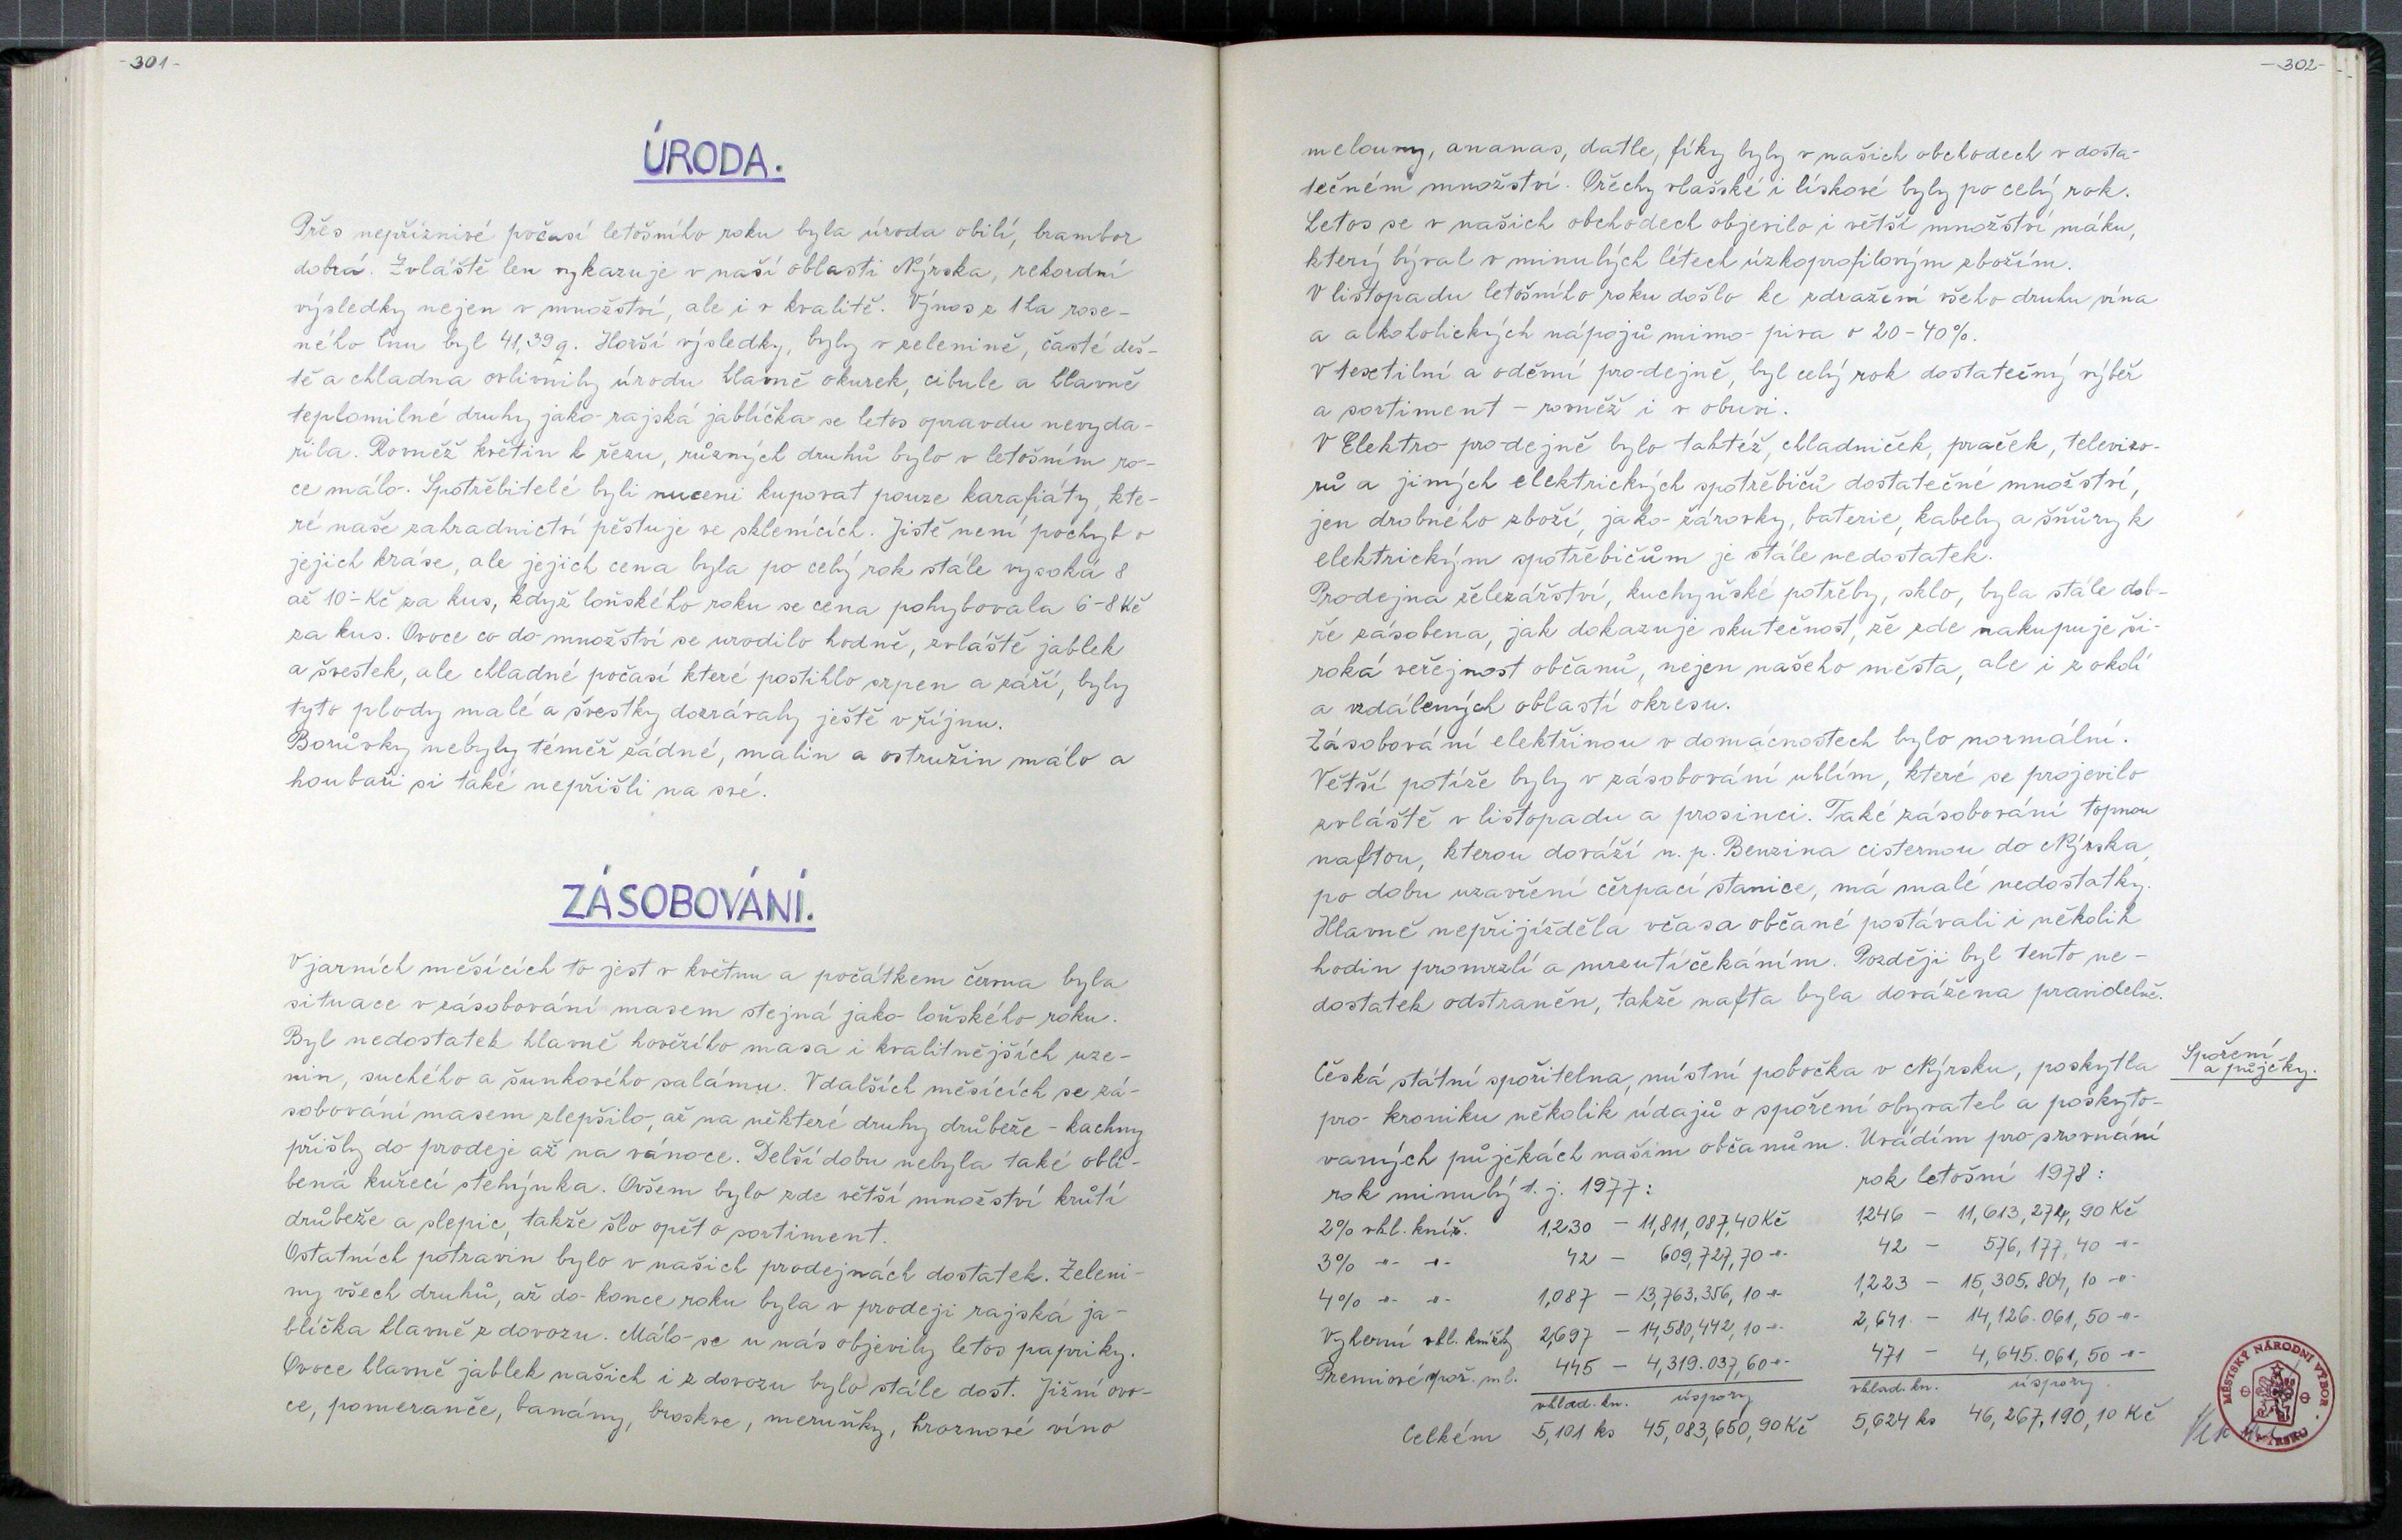 -301-
ÚRODA.
Přes nepříznivé počasí letošního roku byla úroda obilí, brambor
dobrá. Zvláště len vykazuje v naší oblasti Nýrska, rekordní
výsledky nejen v množství, ale i v kvalitě. Výnos z 1 ha rose-
ného lnu byl 41,39 q. Horší výsledky, byly v zelenině, časté deš-
tě a chladna ovlivnily úrodu hlavně okurek, cibule a hlavně
teplomilné druhy jako rajská jablíčka se letos opravdu nevyda-
řila. Rovněž květin k řezu, různých druhů bylo v letošním ro-
ce málo. Spotřebitelé byli nuceni kupovat pouze karafiáty, kte-
ré naše zahradnictví pěstuje ve sklenících. Jistě není pochyb o
jejich kráse, ale jejich cena byla po celý rok stále vysoká 8
až 10.- Kč za kus, když loňského roku se cena pohybovala 6-8 Kč
za kus. Ovoce co do množství se urodilo hodně, zvláště jablek
a švestek, ale chladné počasí které postihlo srpen a září, byly
tyto plody malé a švestky dozrávaly ještě v říjnu.
Borůvky nebyly téměř žádné, malin a ostružin málo a
houbaři si také nepřišli na své.
ZÁSOBOVÁNÍ.
V jarních měsících to jest v květnu a počátkem června byla
situace v zásobování masem stejná jako loňského roku.
Byl nedostatek hlavně hovězího masa i kvalitnějších uze-
nin, suchého a šunkového salámu. V dalších měsících se zá-
sobování masem zlepšilo, až na některé druhy drůbeže - kachny
přišly do prodeje až na vánoce. Delší dobu nebyla také oblí-
bená kuřecí stehýnka. Ovšem bylo zde větší množství krůtí
drůbeže a slepic, takže šlo opět o sortiment.
Ostatních potravin bylo v našich prodejnách dostatek. Zeleni-
ny všech druhů, až do konce roku byla v prodeji rajská ja-
blíčka hlavně z dovozu. Málo se u nás objevily letos papriky.
Ovoce hlavně jablek našich i z dovozu bylo stále dost. Jižní ovo-
ce, pomeranče, banány, broskve, meruňky, hroznové víno
-302-
melouny, ananas, datle, fíky byly v našich obchodech v dosta-
tečném množství. Ořechy vlašské i lískové byly po celý rok.
Letos se v našich obchodech objevilo i větší množství máku,
který býval v minulých létech úzkoprofilovým zbožím.
V listopadu letošního roku došlo ke zdražení všeho druhu vína
a alkoholických nápojů mimo piva o 20-40%.
V textilní a oděvní prodejně, byl celý rok dostatečný výběr
a sortiment - rovněž i v obuvi.
V Elektro prodejně bylo taktéž, chladniček, praček, televizo-
rů a jiných elektrických spotřebičů dostatečné množství,
jen drobného zboží, jako žárovky, baterie, kabely a šňůry k
elektrickým spotřebičům je stále nedostatek.
Prodejna železářství, kuchyňské potřeby, sklo, byla stále dob-
ře zásobena, jak dokazuje skutečnost, že zde nakupuje ši-
roká veřejnost občanů, nejen našeho města, ale i z okolí
a vzdálených oblastí okresu.
Zásobování elektřinou v domácnostech bylo normální.
Větší potíže byly v zásobování uhlím, které se projevilo
zvláště v listopadu a prosinci. Také zásobování topnou
naftou, kterou dováží n. p. Benzina cisternou do Nýrska,
po dobu uzavření čerpací stanice, má malé nedostatky.
Hlavně nepřijížděla včas a občané postávali i několik
hodin promrzlí a mrzutí čekáním. Později byl tento ne-
dostatek odstraněn, takže nafta byla dovážena pravidelně.
Spoření
a půjčky.
Česká státní spořitelna, místní pobočka v Nýrsku, poskytla
pro kroniku několik údajů o spoření obyvatel a poskyto-
vaných půjčkách našim občanům. Uvádím pro srovnání
rok minulý t. j. 1977: rok letošní 1978:
2% vkl. kníž. 1,230 - 11,811,087,40 Kč 1246 - 11,613,274,90 Kč
3% -"- -"- 42 - 609,727,70 -"- 42 - 576,177,40 -"-
4% -"- -"- 1,087 - 13,763.356,10 -"- 1,223 - 15,305.804,10 -"-
Výherní vkl. knížky 2,697 - 14,580,442,10 -"- 2,641 - 14,126.061,50 -"-
Premiové spoř. ml. 445 - 4,319.037,60 -"- 471 - 4,645.061,50 -"-
vklad. kn. úspory vklad. kn. úspory
Celkém 5,101 ks 45,083,650,90 Kč 5,624 ks 46,267,190,10 Kč
MĚSTSKÝ NÁRODNÍ VÝBOR
V NÝRSKU